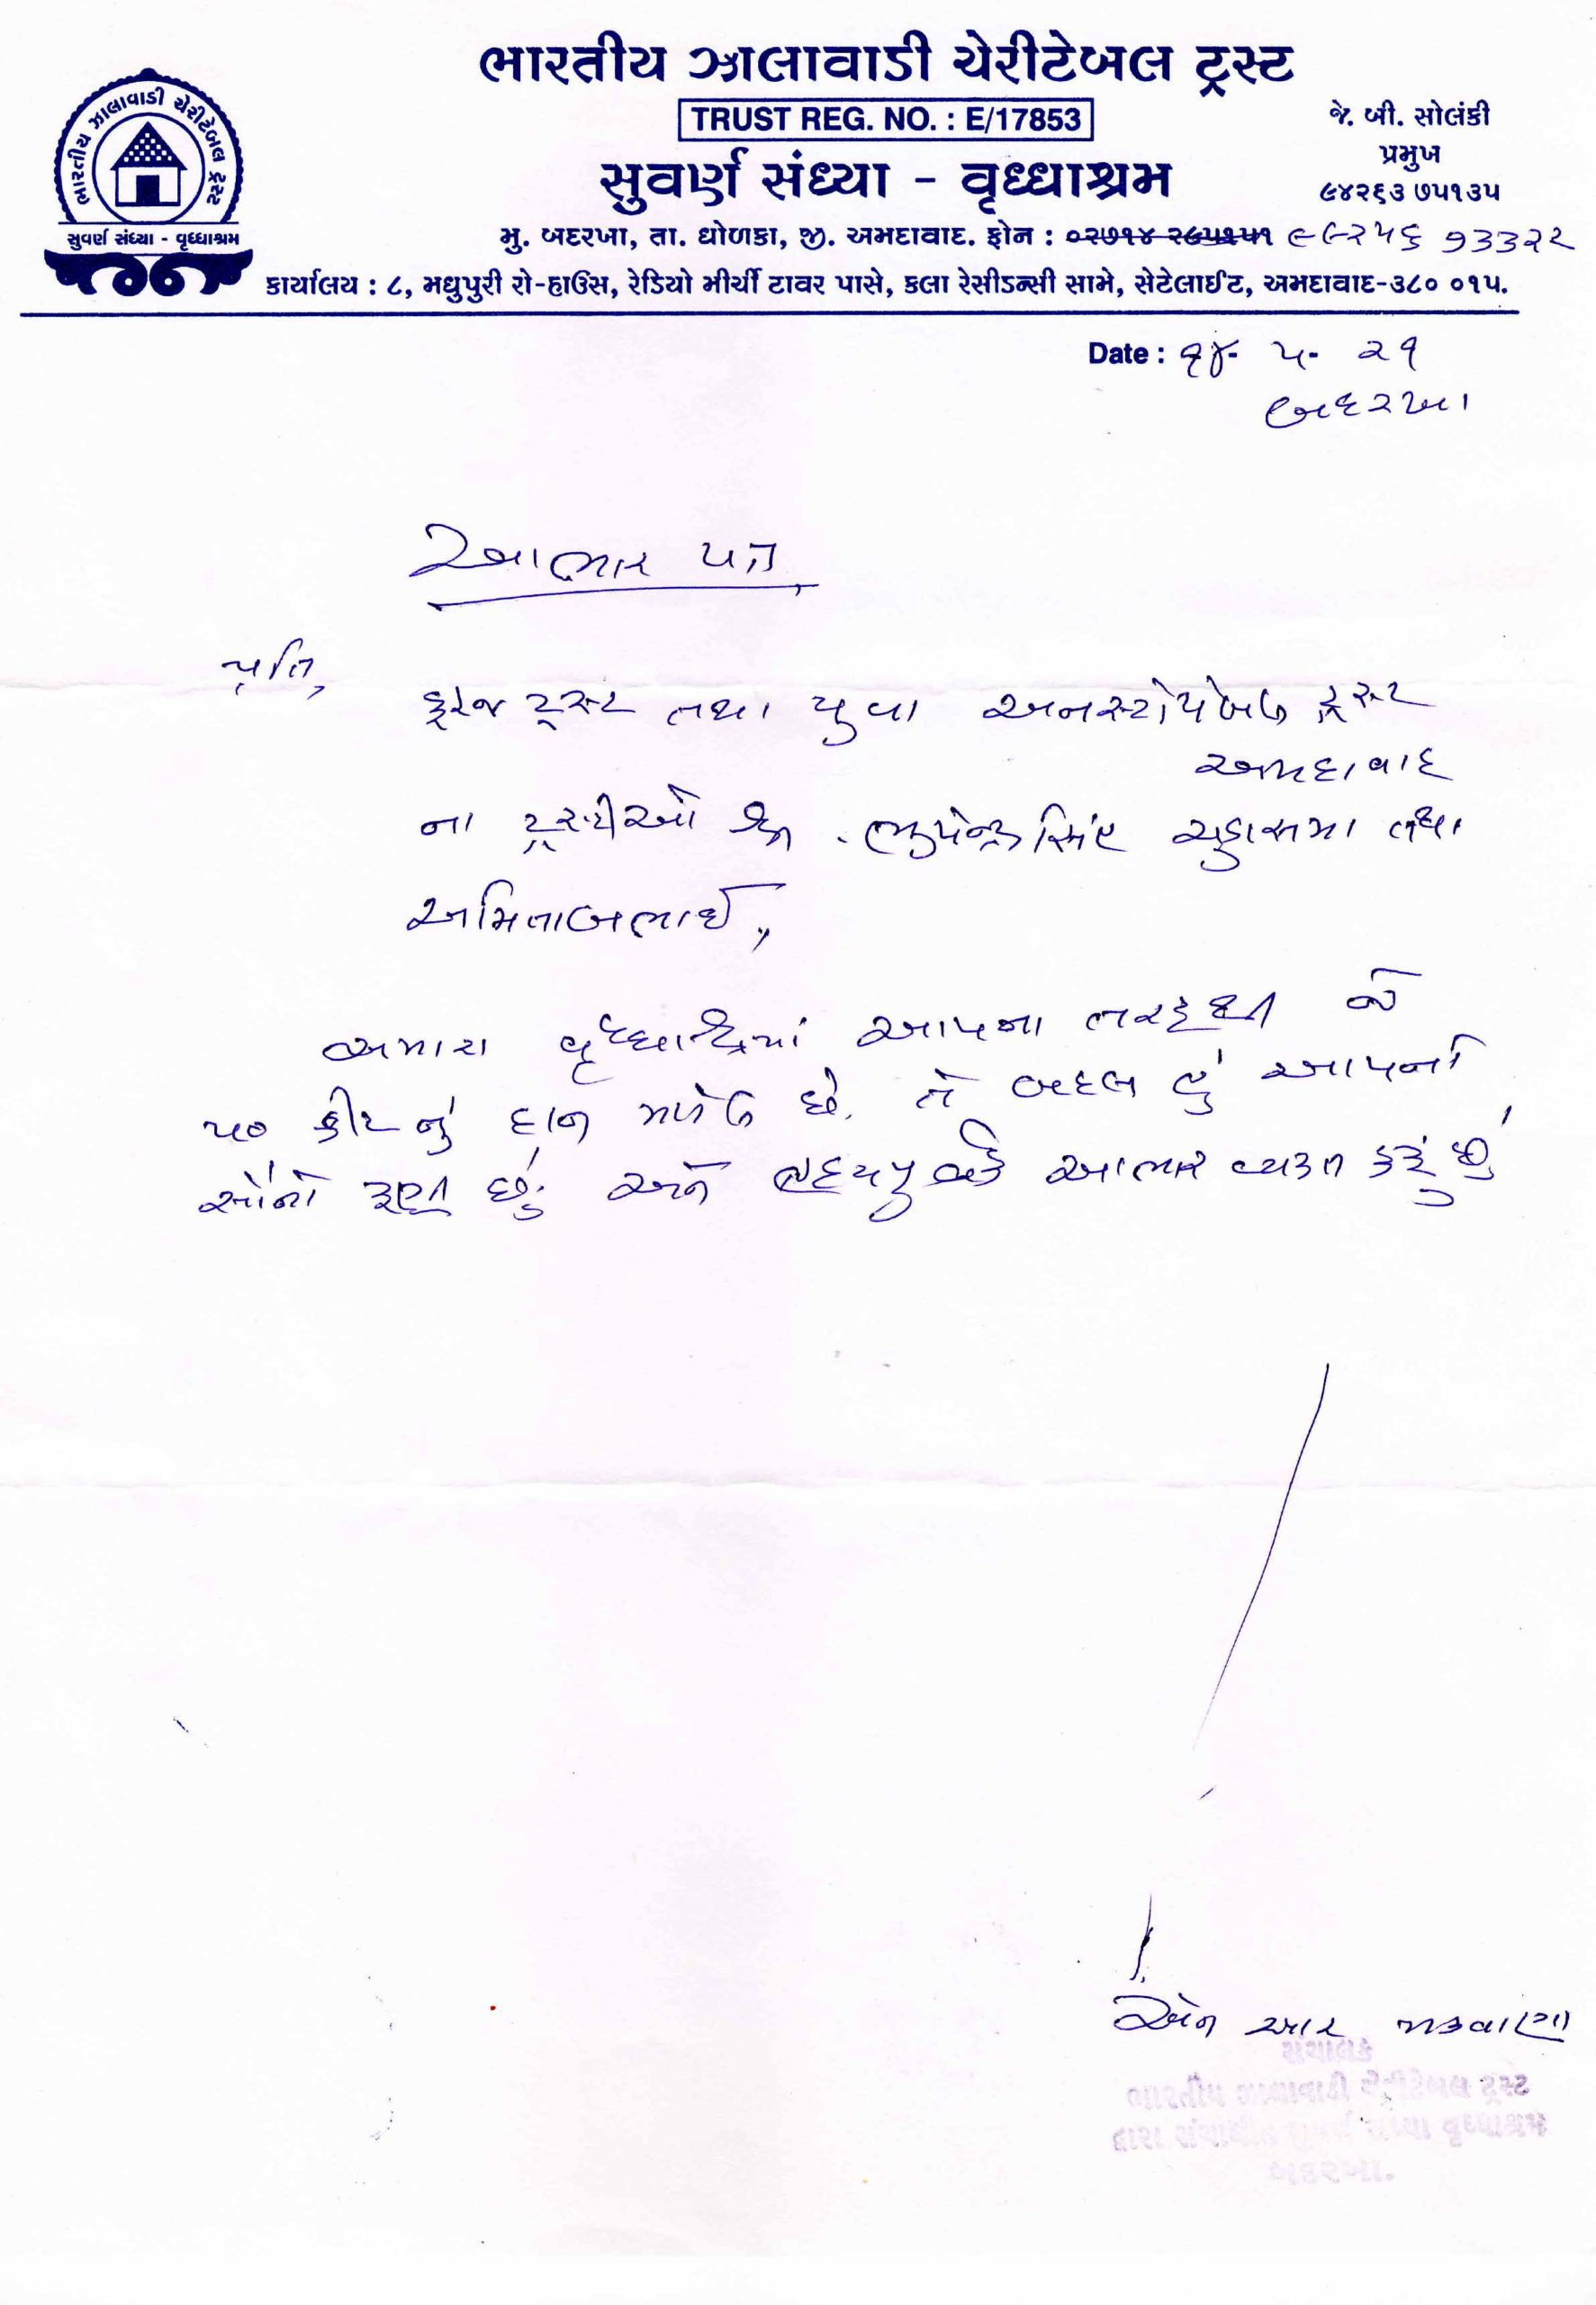 ભારતીય ઝાલાવાડી ચેરીટેબલ ટ્રસ્ટ
TRUST REG. NO. : E/17853
સુવર્ણ સંધ્યા - વૃધ્ધાશ્રમ
જે. બી. સોલંકી
પ્રમુખ
૯૪૨૬૩ ૭૫૧૩૫
ભારતીય ઝાલાવાડી ચેરીટેબલ ટ્રસ્ટ
સુવર્ણ સંધ્યા - વૃધ્ધાશ્રમ
મુ. બદરખા, તા. ધોળકા, જી. અમદાવાદ. ફોન : ૯૯૨૫૬ ૧૩૩૨૨
કાર્યાલય : ૮, મધુપુરી રો-હાઉસ, રેડિયો મીર્ચી ટાવર પાસે, કલા રેસીડન્સી સામે, સેટેલાઈટ, અમદાવાદ-૩૮૦ ૦૧૫.
Date : ૧૪- ૫- ૨૧
બદરખા
આભાર પત્ર
પ્રતિ,
ફરજ ટ્રસ્ટ તથા યુવા અનસ્ટોપેબલ ટ્રસ્ટ
અમદાવાદ
ના ટ્રસ્ટીઓ શ્રી ભુપેન્દ્રસિંહ ચુડાસમા તથા
અમિતાબભાઈ,
અમારા વૃધ્ધાશ્રમમાં આપના તરફથી જે
૫૦ કીટનું દાન મળેલ છે. તે બદલ હું આપનો
સૌનો રૂણી છું. અને હૃદયપુર્વક આભાર વ્યક્ત કરું છું
એન આર મકવાણા
સંચાલક
ભારતીય ઝાલાવાડી ચેરીટેબલ ટ્રસ્ટ
દ્વારા સંચાલીત સુવર્ણ સંધ્યા વૃધ્ધાશ્રમ
બદરખા.